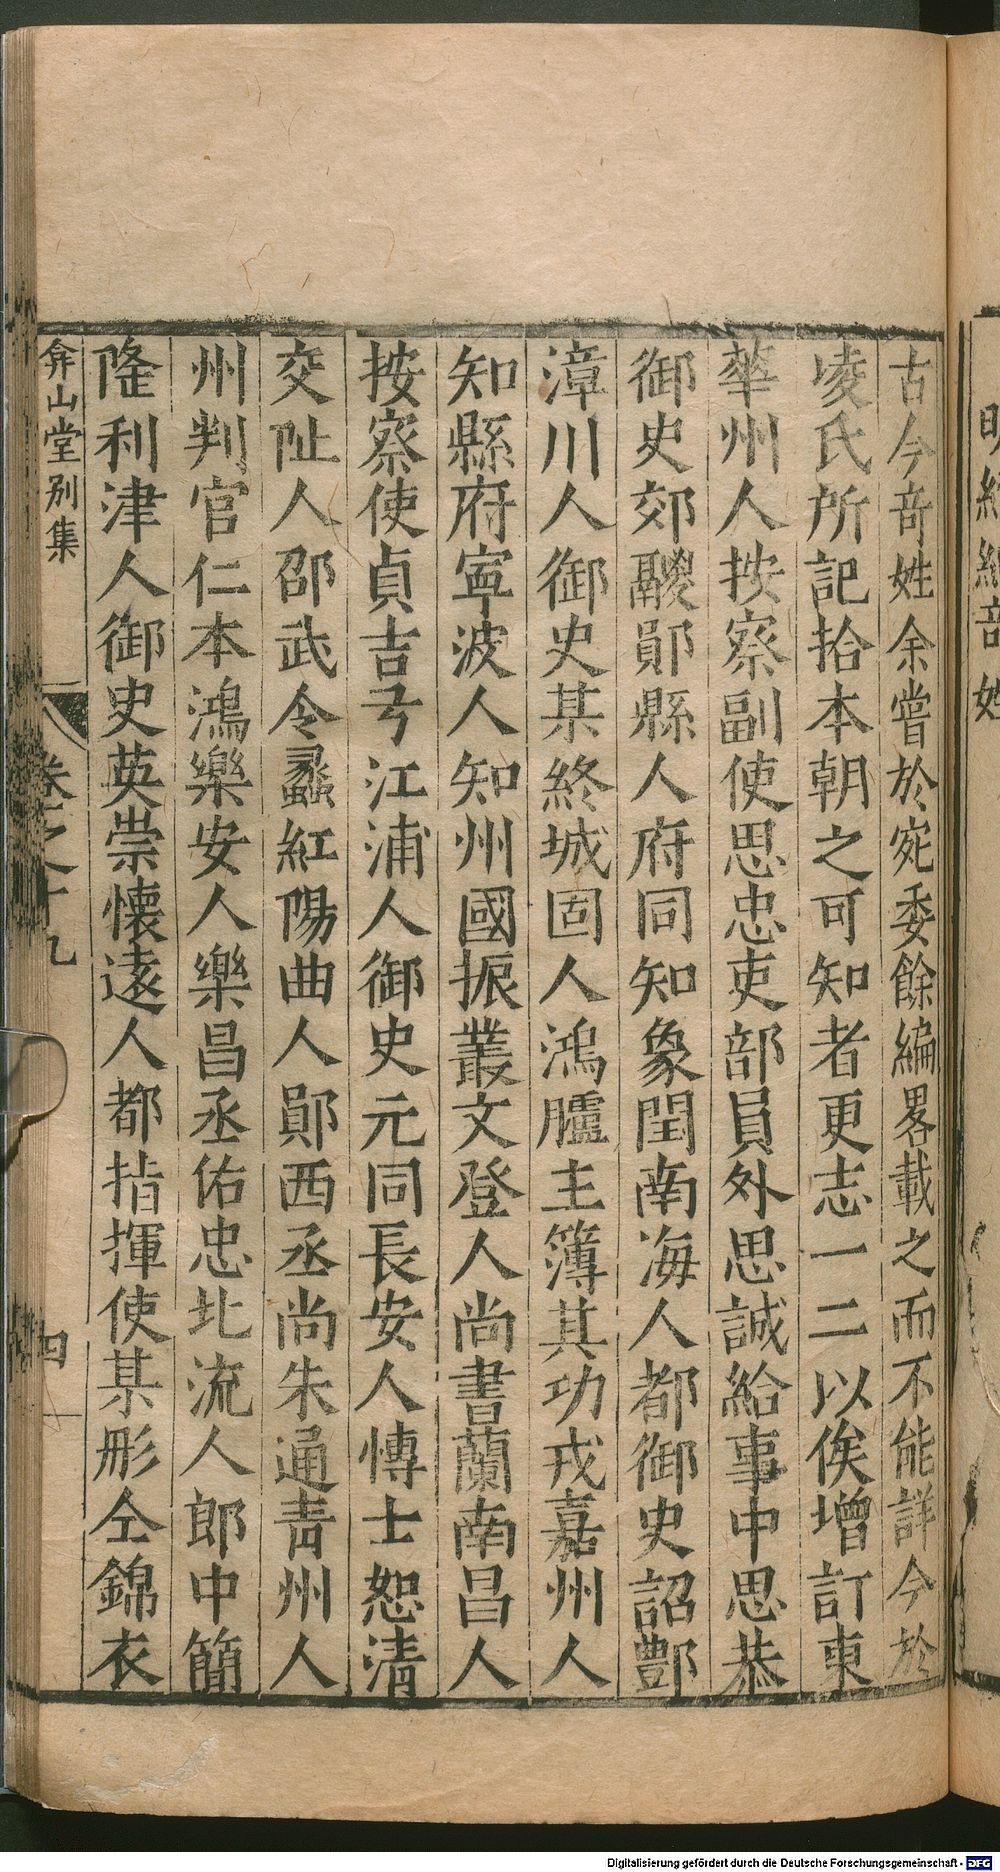 古今奇姓余嘗於宛委餘編畧載之而不能詳今於
凌氏所記拾本朝之可知者更志一二以俟增訂東
華州人按察副使思忠吏部員外思誠給事中思恭
御史郊鄤郧縣人府同知象閏南海人都御史詔酆
漳川人御史某終城固人鴻臚主簿其功戎嘉州人
知縣府寧波人知州國振叢文登人尚書蘭南昌人
按察使貞吉亏江浦人御史元同長安人博士恕清
交阯人邵武令蠡紅陽曲人鄖西丞尚朱通青州人
州判官仁本鴻樂安人樂昌丞佑忠北流人郎中簡
隆利津人御史英崇懷遠人都指揮使某彤仝錦衣
弇山堂別集
卷之十九
四